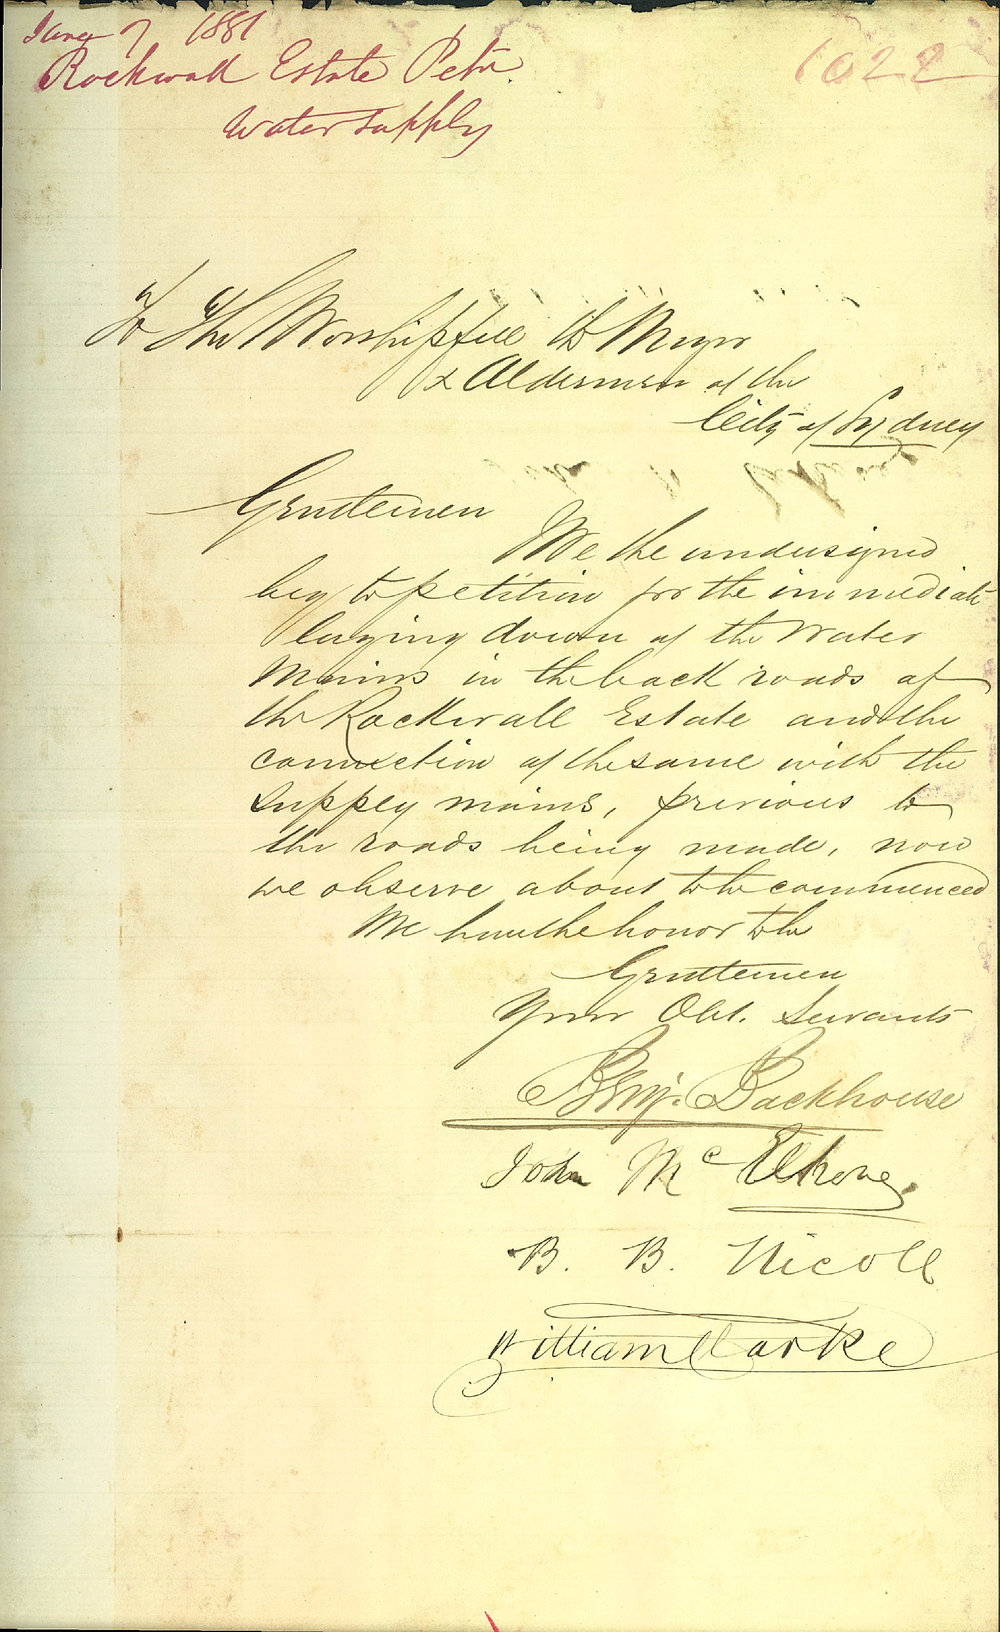 June 7 1881
Rockwall Estate Petn.
Water Supply
1022
To The Worshipfull the Mayor
& Aldermen of the
City of Sydney
Gentlemen
We the undersigned
beg to petition for the immediate
laying down of the Water
Mains in the back roads of
the Rockwall Estate and the
connection of the same with the
supply mains, previous to
the roads being made, now
we observe about to be commenced
We have the honor to be
Gentlemen
Your Obt. Servants
Benj. Backhouse
John Mc Elhone
B. B. Nicoll
William Clarke